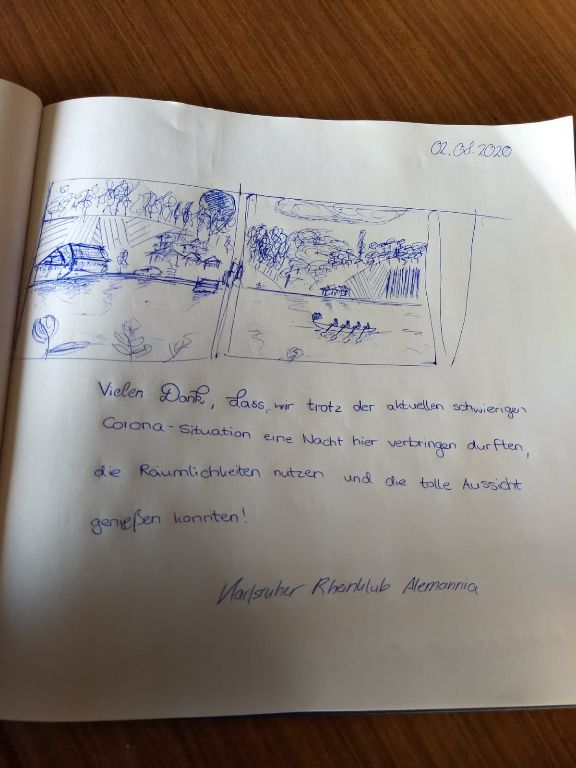 02.08.2020
Vielen Dank, dass wir trotz der aktuellen schwierigen
Corona-Situation eine Nacht hier verbringen durften,
die Räumlichkeiten nutzen und die tolle Aussicht
genießen konnten!
Karlsruher Rheinklub Alemannia